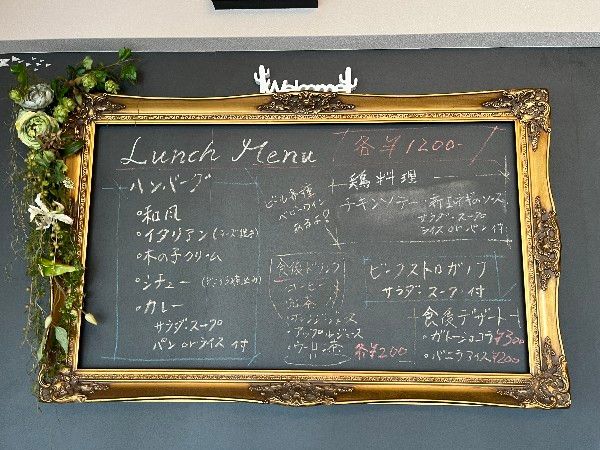 Welcome
Lunch Menu
各¥1200-
ハンバーグ
・和風
・イタリアン(チーズ焼き)
・木の子クリーム
・シチュー
・カレー
サラダ・スープ
パン or ライス 付
ビール各種
ベビーワイン
あるよ!
鶏料理
チキンソテー 新玉ネギのソース
サラダ・スープ
ライス or パン 付
食後ドリンク
・コーヒー
・紅茶
・オレンジジュース
・アップルジュース
・ウーロン茶
各¥200
ビーフストロガノフ
サラダ・スープ付
食後デザート
・ガトーショコラ ¥300
・バニラアイス ¥200